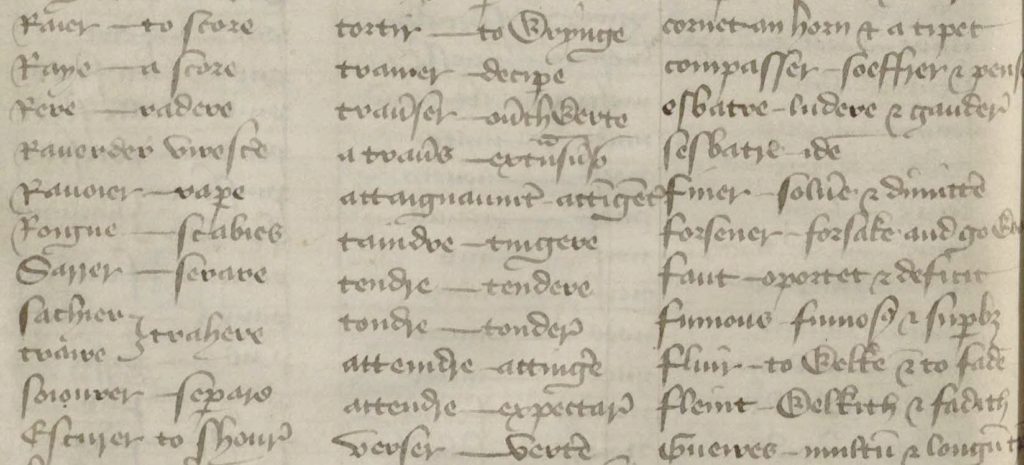 Raier to score
Raye a score
Rere radere
Rauerder viresce
Rauoier rape
Rongne scabies
Sarrer serare
sachier
traire trahere
soiourer separo
Escurer to shour
tortir to Wrynge
tramer decipe
trauser outhWerte
a traus
attaignaument attingent
taindre tingere
tendre tendere
tondre tonder
atteindre attinge
attendre expectar
verser verte
cornet an horn & a tipet
compasser soeffrer & pens
esbatre ludere & gauder
sesbatre ide
finer solue & dimitte
forsener forsake and go
faut oportet & deficit
fumous fumos & supbz
fluir to Welke & to fade
fleint Welkith & fadith
Gueires multu & longu